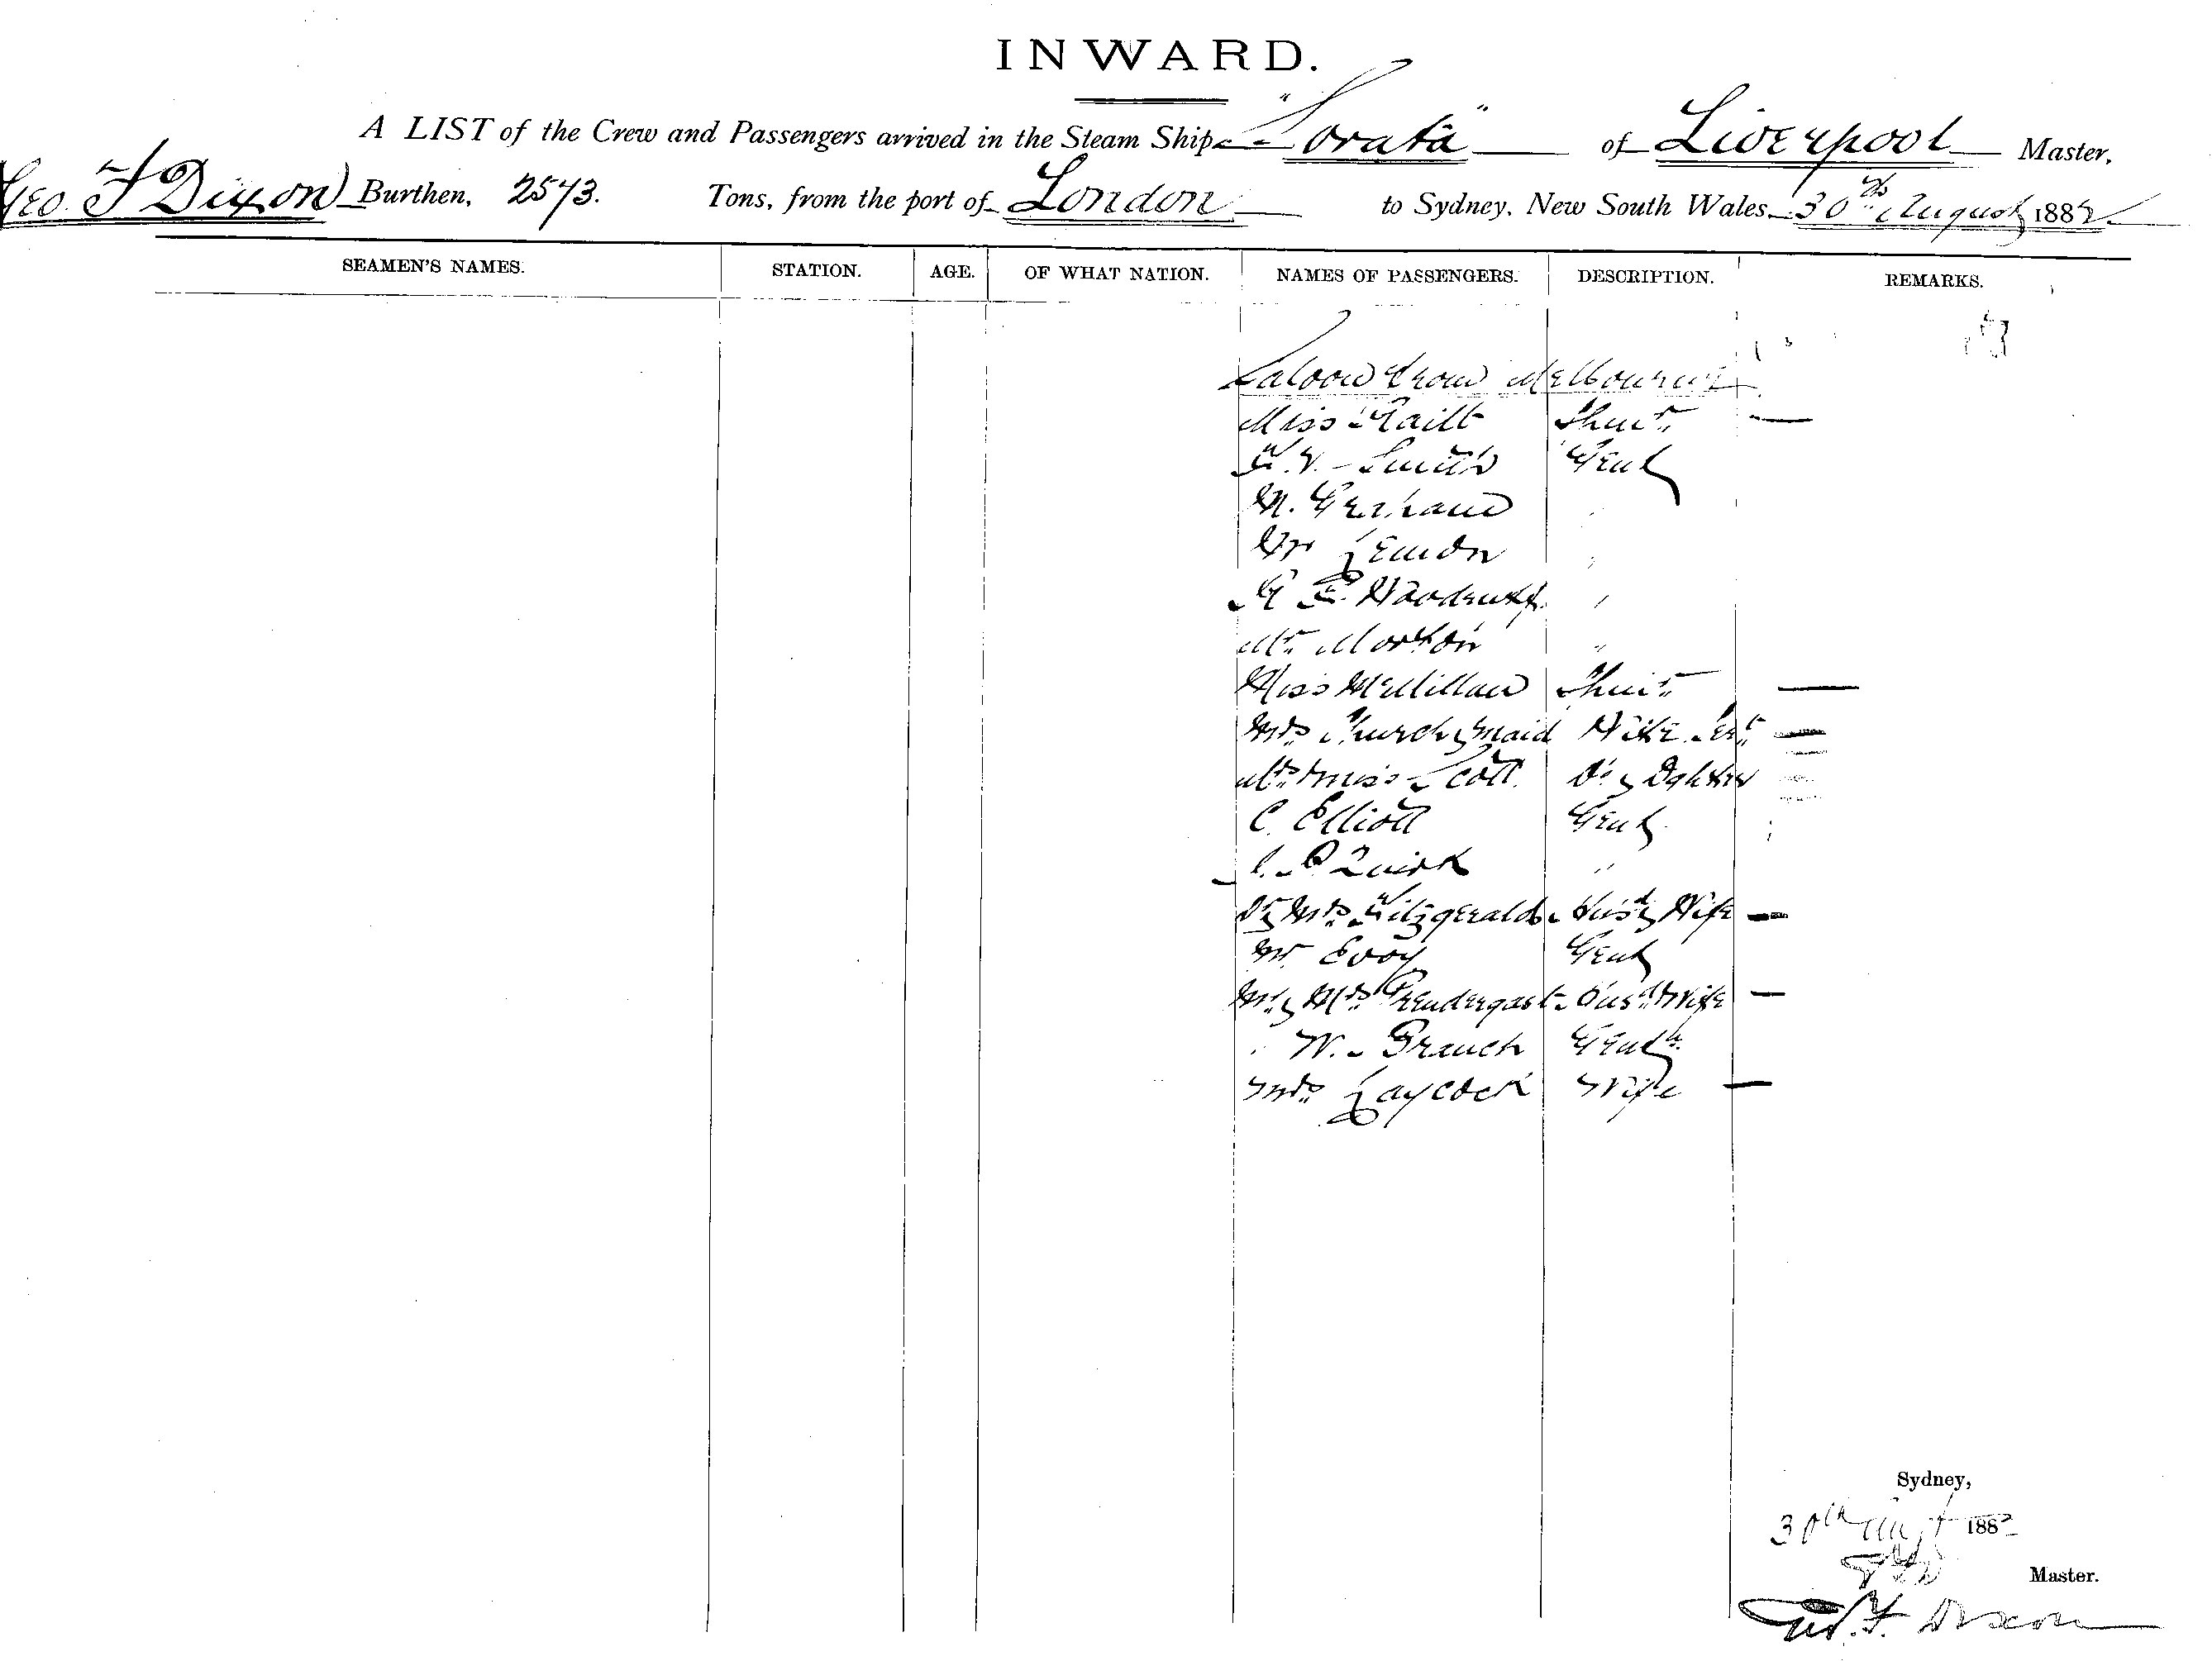 INWARD.
A LIST of the Crew and Passengers arrived in the Steam Ship "Sorata" of Liverpool Master,
Geo. F Dixon Burthen, 2573. Tons, from the port of London to Sydney, New South Wales 30th August 1882
SEAMEN'S NAMES. STATION. AGE. OF WHAT NATION. NAMES OF PASSENGERS. DESCRIPTION. REMARKS.
Saloon from Melbourne
Miss Raitt
F. V. Smith Gent
M.
Mr Lemon "
G E. Woodruff "
Mr. Morton "
Miss McMillan
Mrs Church & maid Wife
Mrs & Miss Scott Do & Dghter
C. Elliott Gent
Quirk "
Dr & Mrs Fitzgerald Husd & Wife
Mr Evoy Gent
Mr & Mrs Prendergast Husd & Wife
W. Branch Gent
Mrs Laycock Wife
Sydney,
30th Augt 1882
Master.
Geo. F. Dixon